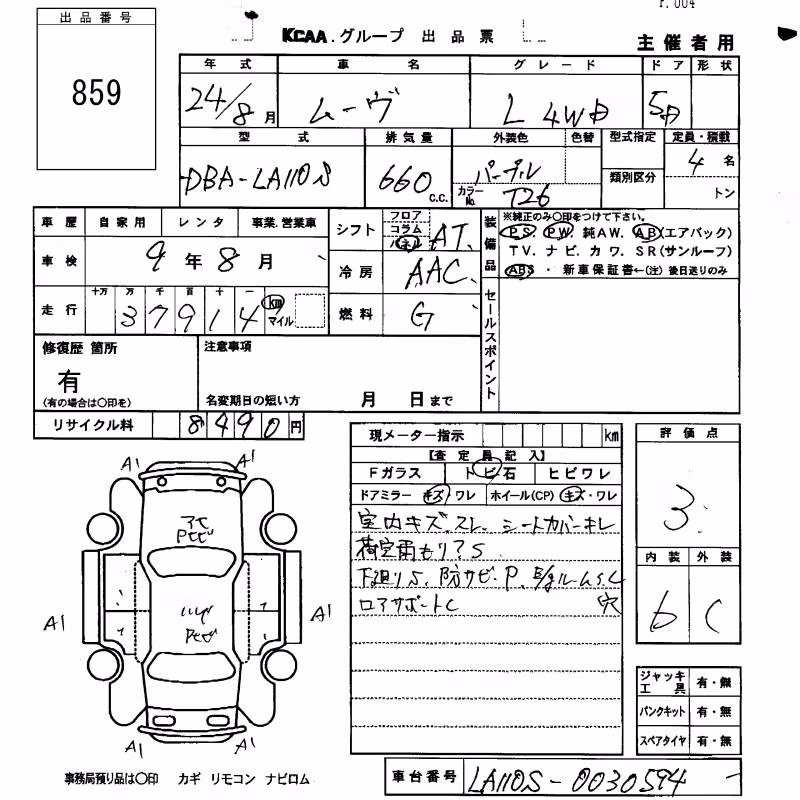 出品番号
859
KCAA.グループ 出品票
主催者用
年式 車名 グレード ドア 形状
24/8月 ムーヴ L 4WD 5D
型式 排気量 外装色 色替 型式指定 定員・積載
DBA-LA110S 660 C.C. パープル カラーNo. T26 類別区分 4名 トン
車歴 自家用 レンタ 事業.営業車
シフト フロア コラム パネル AT
装備品 ※純正のみ〇印をつけて下さい。
PS PW 純AW. AB(エアバック)
TV. ナビ. カワ. SR(サンルーフ)
ABS ・ 新車保証書←(注) 後日送りのみ
車検 9年8月
冷房 AAC
走行 十万 万 千 百 十 一
37914 km マイル
燃料 G
セールスポイント
修復歴 箇所 注意事項
有
(有の場合は〇印を) 名変期日の短い方 月 日まで
リサイクル料 8490円
現メーター指示 km
評価点
3
【査定員記入】
Fガラス トビ石 ヒビワレ
ドアミラー キズ・ワレ ホイール(CP) キズ・ワレ
室内キズ.スレ. シートカバーキレ
荷室雨もり?S
下廻りS. 防サビ.P. E/gルームS.C
ロアサポートC 穴
内装 外装
6 C
A1 A1
A1 A1
A1 A1
ジャッキ工具 有・無
パンクキット 有・無
スペアタイヤ 有・無
事務局預り品は〇印 カギ リモコン ナビロム
車台番号 LA110S-0030594